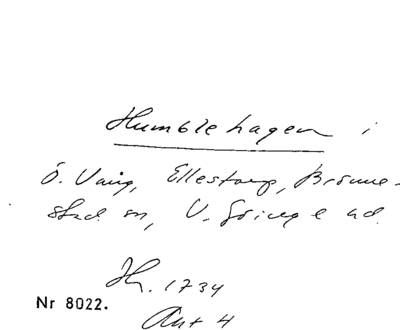 Humblehagen i
Ö. Vang, Ellestorp, Brönne-
stad sn, V. Göinge hd.
Jh. 1734
Nr 8022.
Akt 4